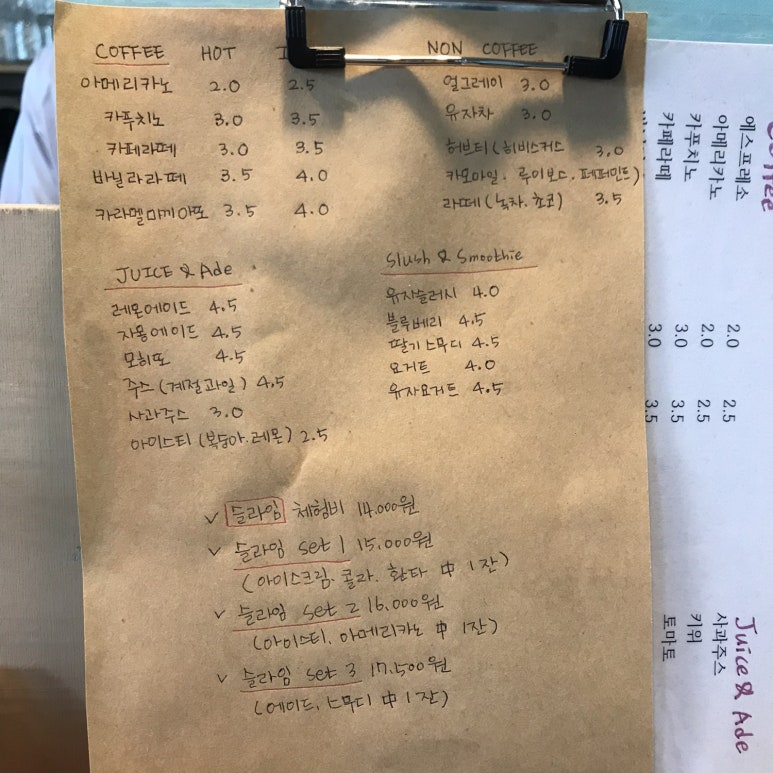 COFFEE HOT I
아메리카노 2.0 2.5
카푸치노 3.0 3.5
카페라떼 3.0 3.5
바닐라라떼 3.5 4.0
카라멜마끼아또 3.5 4.0
NON COFFEE
얼그레이 3.0
유자차 3.0
허브티 (히비스커스 3.0
카모마일. 루이보드. 페퍼민트)
라떼 (녹차. 초코) 3.5
JUICE & Ade
레몬에이드 4.5
자몽에이드 4.5
모히또 4.5
주스 (계절과일) 4.5
사과주스 3.0
아이스티 (복숭아.레몬) 2.5
Slush & Smoothie
유자슬러시 4.0
블루베리 4.5
딸기스무디 4.5
요거트 4.0
유자요거트 4.5
✓ 슬라임 체험비 14.000원
✓ 슬라임 set 1 15.000원
(아이스크림. 콜라. 환타 中 1잔)
✓ 슬라임 set 2 16.000원
(아이스티. 아메리카노 中 1잔)
✓ 슬라임 set 3 17.500원
(에이드, 스무디 中 1잔)
에스프레소
아메리카노 2.0 2.5
카푸치노 3.0 3.5
카페라떼 3.0 3.5
Juice & Ade
사과주스
키위
토마토